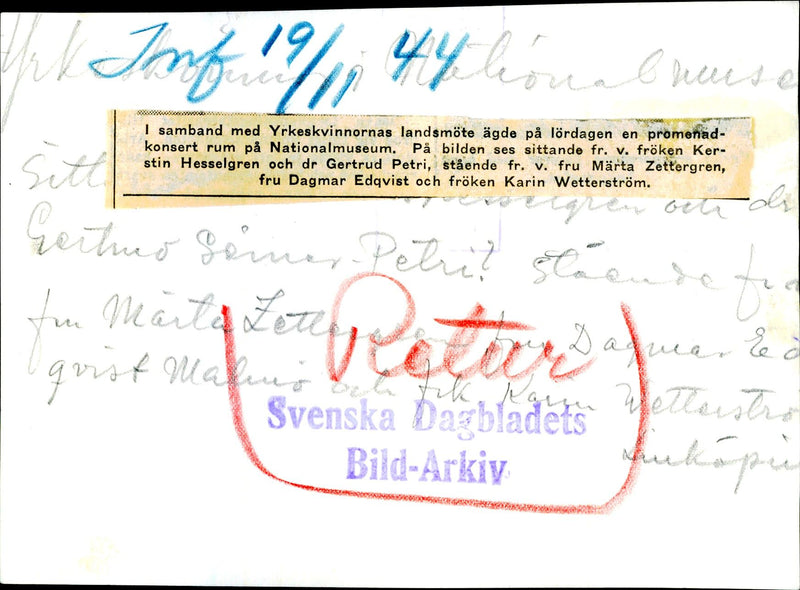 Inf 19/11 44
Nationalmuse
I samband med Yrkeskvinnornas landsmöte ägde på lördagen en promenad-
konsert rum på Nationalmuseum. På bilden ses sittande fr. v. fröken Ker-
stin Hesselgren och dr Gertrud Petri, stående fr. v. fru Märta Zettergren,
fru Dagmar Edqvist och fröken Karin Wetterström.
Sitt
Hesselgren och dr
Gertrud Petri? Stående fr
fru Märta Zettergren, fru Dagmar Ed
qvist Malmö och frk Karin Wetterströ
Linköpin
Retur
Svenska Dagbladets
Bild-Arkiv